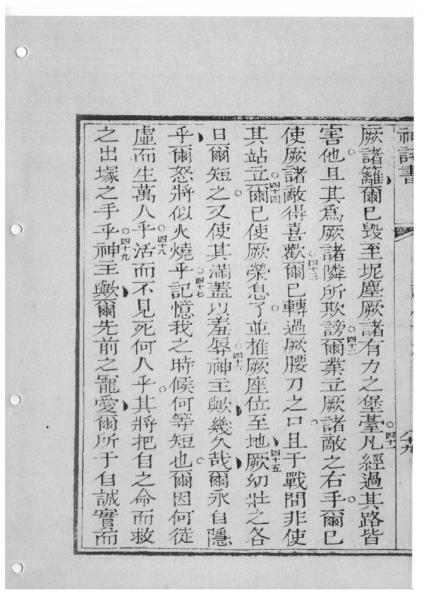 神詩書
厥諸籬爾已毀至坭塵厥諸有力之堡臺凡四十一經過其路皆
害他且其為厥諸隣所欺謗四十二爾業立厥諸敵之右手爾已
使厥諸敵得喜歡四十三爾已轉過厥腰刀之口且于戰間非使
其站立四十四爾已使厥榮息了並推厥座位至地四十五厥幼壯之各
日爾短之又使其滿蓋以羞辱四十六神主歟幾久哉爾永自隱
乎爾怒將似火燒乎四十七記憶我之時候何等短也爾因何徒
虛而生萬人乎四十八活而不見死何人乎其將把自之命而救
之出塚之手乎四十九神主歟爾先前之寵愛爾所于自誠實而